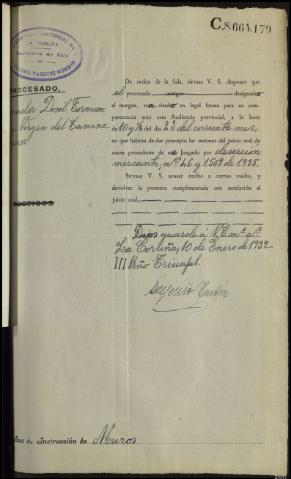 C.8.664.179
LA CORUÑA
Secretaría de Sala
VAZQUEZ
PROCESADO,
De orden de la Sala, sírvase V. S. disponer que
el procesado
al margen, sea citado en legal forma para su com-
parecencia ante esta Audiencia provincial, a la hora
de 10 y ½ del día 23 del corriente mes,
en que habrán de dar principio las sesiones del juicio oral de
causa procedente de ese Juzgado por deserción
mercante, nº 46 y 1502 de 1935.
Sírvase V. S. acusar recibo a correo vuelto, y
devolver la presente cumplimentada con antelación al
juicio oral,
Virgen del Carmen
Dios guarde á V.S. m.s a.s
La Coruña, 10 de Enero de 1939
III Año Triunfal.
de Instrucción de Muros